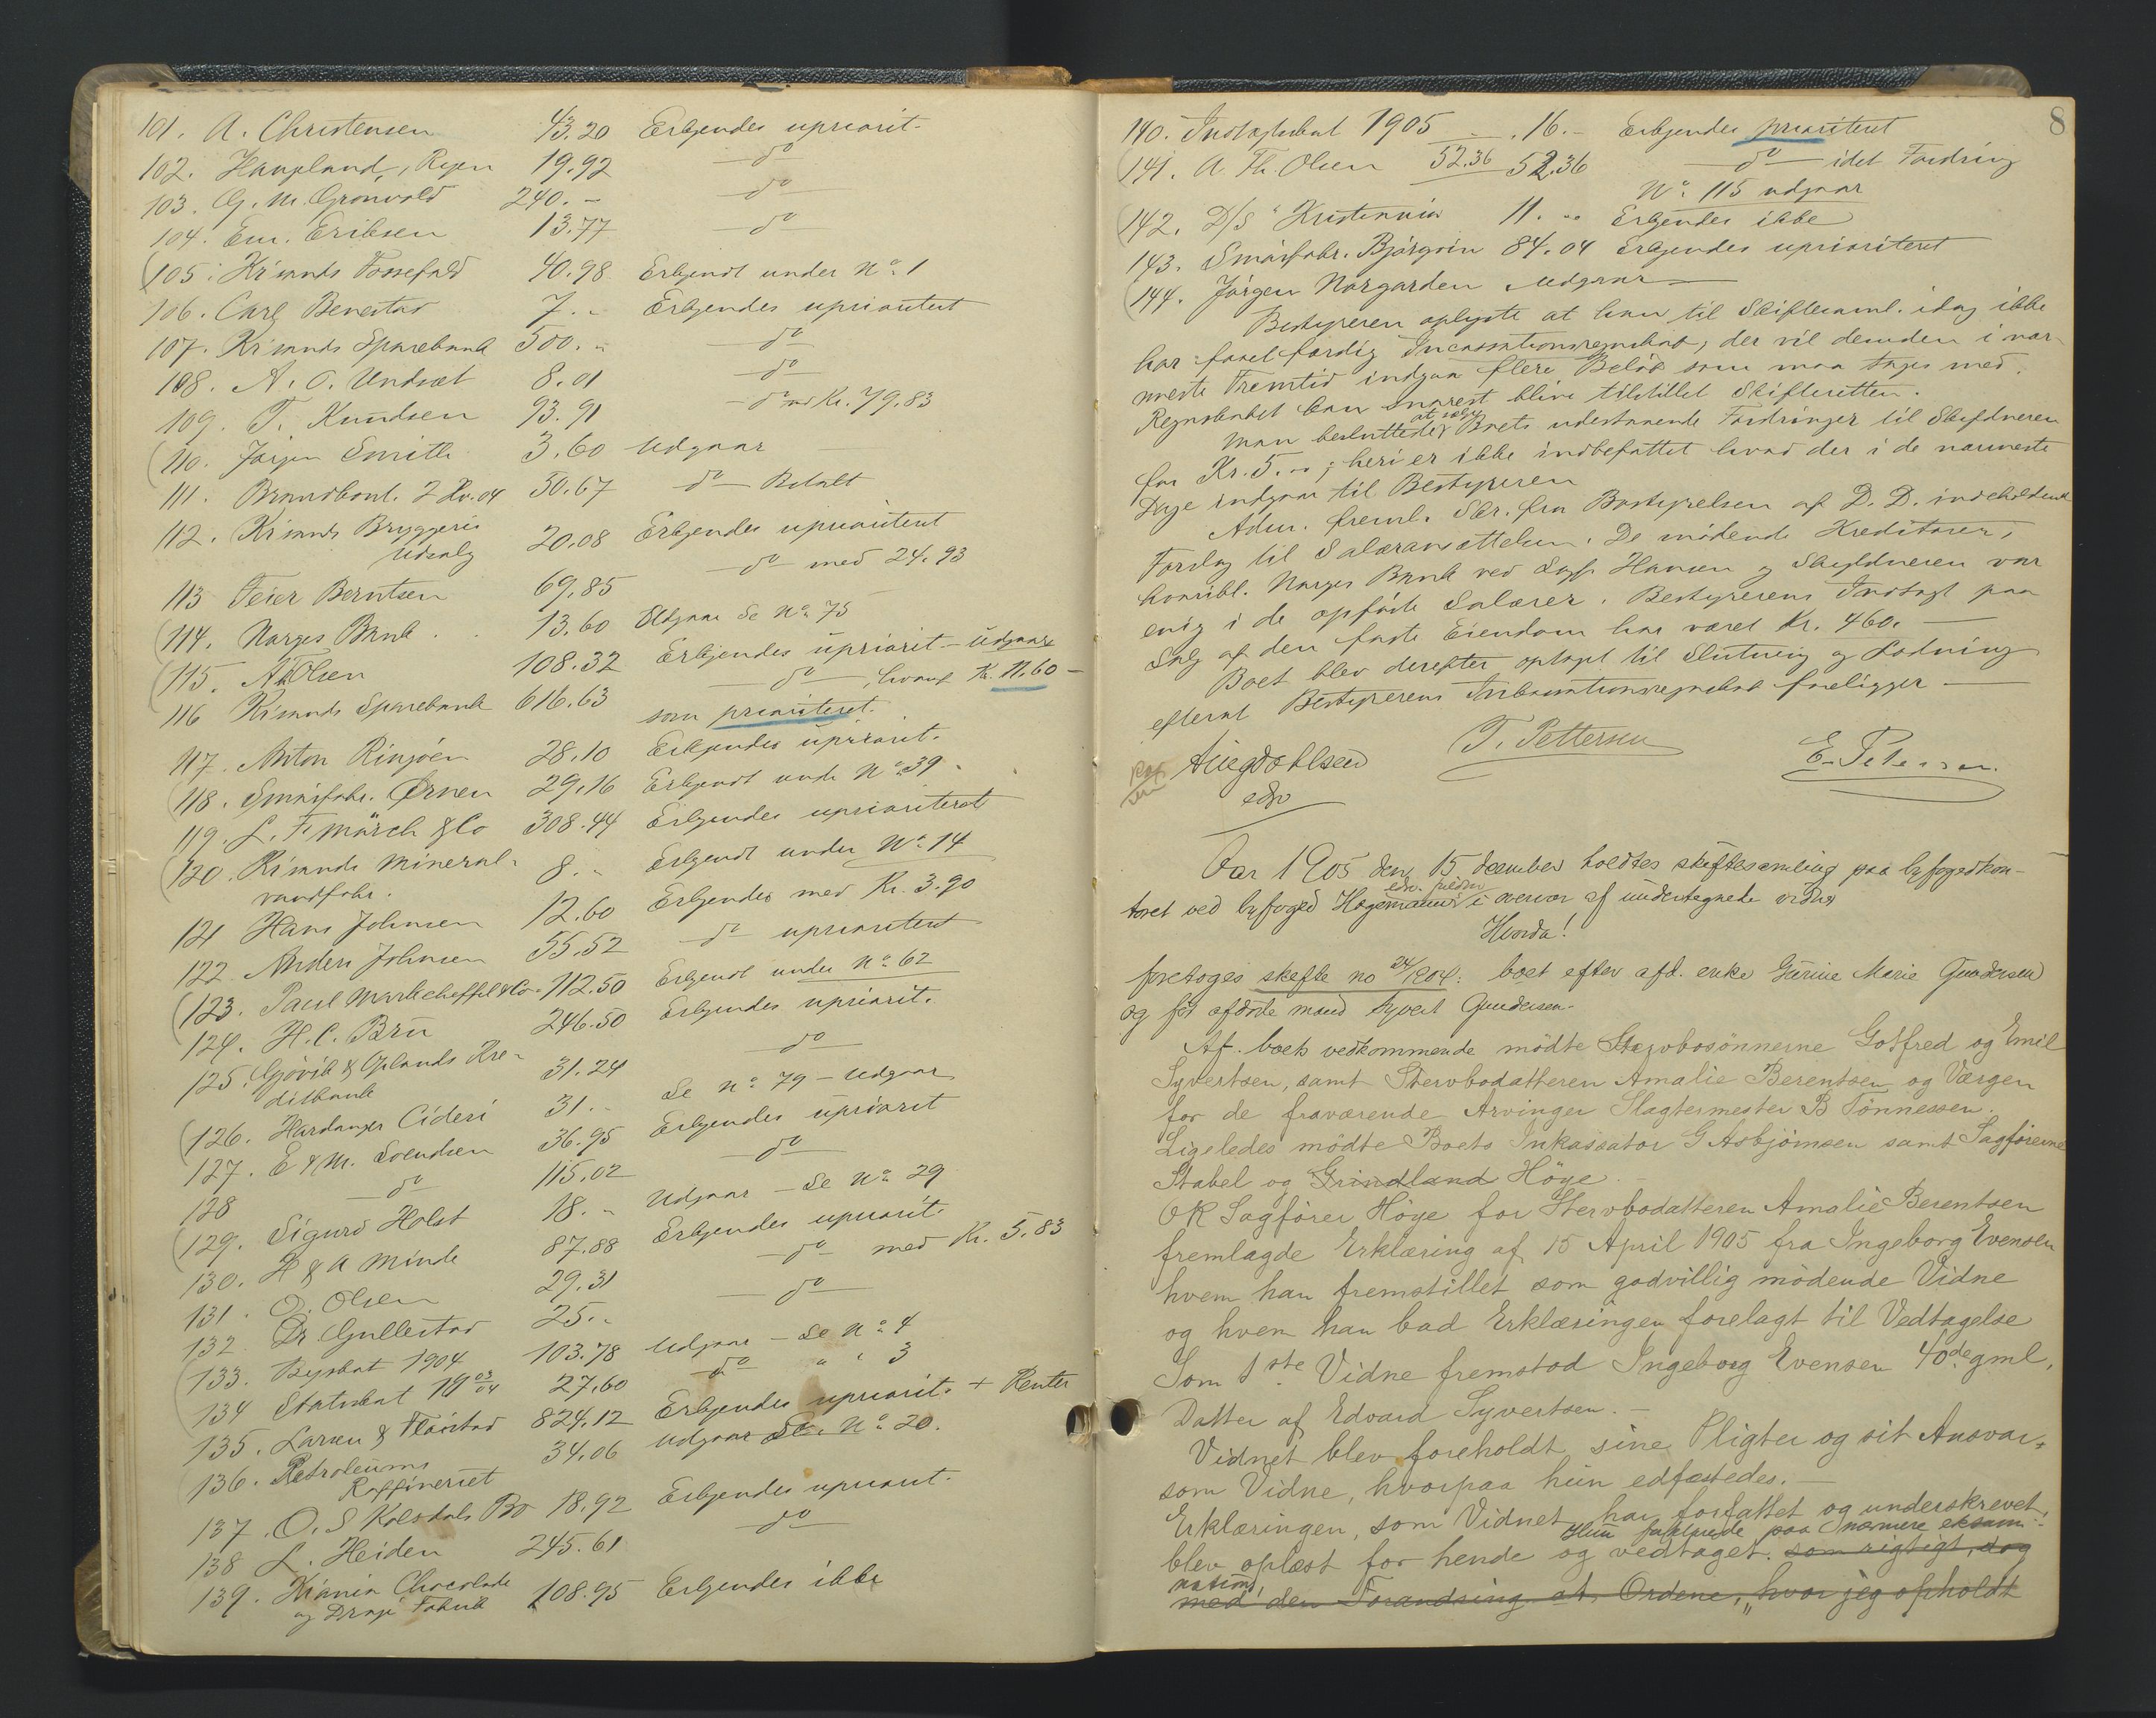 101. A. Christensen 43.20 Erkjendes upriorit.
102. Haugland, Ryen 19.92 — do —
103. G. M. Grönvold 240. – — do —
104. Em. Eriksen 13.77 — do —
(105. Kr'sands Fossefald 40.98 Erkjendt under No. 1
106. Carl Benestad 7. „ Erkjendes uprioritert
107. Kr'sands Sparebank 500. „ — do —
108. A. O. Undsæt 8.01 — do —
109. T. Knudsen 93.91 — do — med Kr. 79.83
(110. Jörgen Smith 3.60 Udgaar
111. Brandkont. 2 Kv. 04 50.67 — do — Betalt
112. Kr'sands Bryggeris
Udsalg 20.08 Erkjendes uprioritert
113 Teier Berntsen 69.85 — do — med 24.93
(114. Norges Bank . . 13.60 Udgaar Se No. 75
(115. A Th Olsen 108.32 Erkjendes upriorit – Udgaar
116 Kr'sands Sparebank 616.63 — do —, hvoraf Kr. 11.60 –
som prioriteret.
117. Anton Rinjöen 28.10 Erkjendes upriorit.
(118. Smörfabr. Örnen 29.16 Erkjendt under No. 39.
119. L. F. Mörch & Co 308.44 Erkjendes uprioriteret
(120. Kr'sands Mineral-
vandfabr. 8. „ Erkjendt under No. 14
121 Hans Johnsen 12.60 Erkjendes med Kr. 3.90
122 Anders Johnsen 55.52 — do — uprioritert
(123. Paul Markcheffel & Co. 112.50 Erkjendt under No. 62
124. H. C. Brü 246.50 Erkjendes upriorit.
125. Gjövik & Oplands Kre-
ditbank 31.24 — do —
(126. Hardanger Cideri 31. „ Se No. 79 – Udgaar
127. E & M. Svendsen 36.95 Erkjendes upriorit
128 — do — 115.02 — do —
(129. Sigurd Holst 18. „ Udgaar – Se No. 29
130. H & A Minde 87.88 Erkjendes upriorit.
131. O. Olsen 29.31 — do — med Kr. 5.83
132 Dr Gullestad 25. „ — do —
(133. Byskat 1904 103.78 Udgaar – Se No. 4
134 Statsskat 19 03/04 27.60 — do — „ „ 3
135. Larsen & Fløistad 824.12 Erkjendes upriorit. + Renter
(136. Petroleums
Raffineriet 34.06 Udgaar Se No. 20.
137. O. S Kolsdals Bo 18.92 Erkjendes upriorit.
138 L. Heiden 245.61 — do —
139. Kr'ania Chocolade
og Drage Fabrik 108.95 Erkjendes ikke
8
140. Indtægtsskat 1905 . 16. – Erkjendes prioritert
(141. A. Th. Olsen 52.36 52.36 — do — idet Fordring
No. 115 udgaar
(142. D/S "Kristiania 11. „ Erkjendes ikke
143. Smörfabr. Björgvin 84.04 Erkjendes uprioriteret
(144. Jörgen Norgarden Udgaar —
Bestyreren oplyste at han til Skiftesaml. idag ikke
har faaet færdig Incassationsregnskab, der vil desuden i nær-
meste Fremtid indgaa flere Beløb som maa tages med.
Regnskabet kan snarest blive tilstillet Skifteretten.
Man besluttede at sælge Boets udestaaende Fordringer til Skyldneren
for Kr. 5. „ ; heri er ikke indbefattet hvad der i de nærmeste
Dage indgaar til Bestyreren
Adm. freml. Skr. fra Bestyrelsen af D. D. indeholdende
Forslag til Salæransættelsen. De mödende Kreditorer,
hvoribl. Norges Bank ved Sagf. Hansen og Skyldneren var
enig i de opförte Salærer. Bestyrerens Indtægt paa
Salg af den faste Eiendom har været Kr. 460. —
Boet blev derefter optaget til Slutning og Lodning
efterat Bestyrerens Inkassationsregnskab foreligger —
T. Pettersen
E. Petersen.
edv
Aar 1905 den 15 december holdtes skiftesamling paa byfogedkon-
toret ved byfoged Hagemanns edv. fuldm. i overvær af undertegnede vidner
Hvorda!
foretoges skifte no 24/1904: boet efter afd. enke Gurine Marie Gundersen
og før afdøde mand Syvert Gundersen.
Af boets vedkommende mödte Stervbosönnerne Gotfred og Emil
Syvertsen, samt Stervbodatteren Amalie Berentsen og Værgen
for de fraværende Arvinger Slagtermester B Tönnessen.
Ligeledes mödte Boets Inkassator G Asbjörnsen samt Sagförerne
Stabel og Grindland Höye.
OR Sagförer Höye for Stervbodatteren Amalie Berentsen
fremlagde Erklæring af 15 April 1905 fra Ingeborg Evensen
hvem han fremstillet som godvillig mödende Vidne
og hvem han bad Erklæringen forelagt til Vedtagelse
Som 1ste Vidne fremstod Ingeborg Evensen 40de gml,
Datter af Edvard Syvertsen. –
Vidnet blev foreholdt sine Pligter og sit Ansvar
som Vidne, hvorpaa hun edfæstedes. —
Erklæringen, som Vidnet har forfattet og underskrevet,
blev oplæst for hende og vedtaget. Hun forklarede paa nærmere eksami- som rigtigt, dog
nation: med den Forandring at Ordene, „hvor jeg opholdt